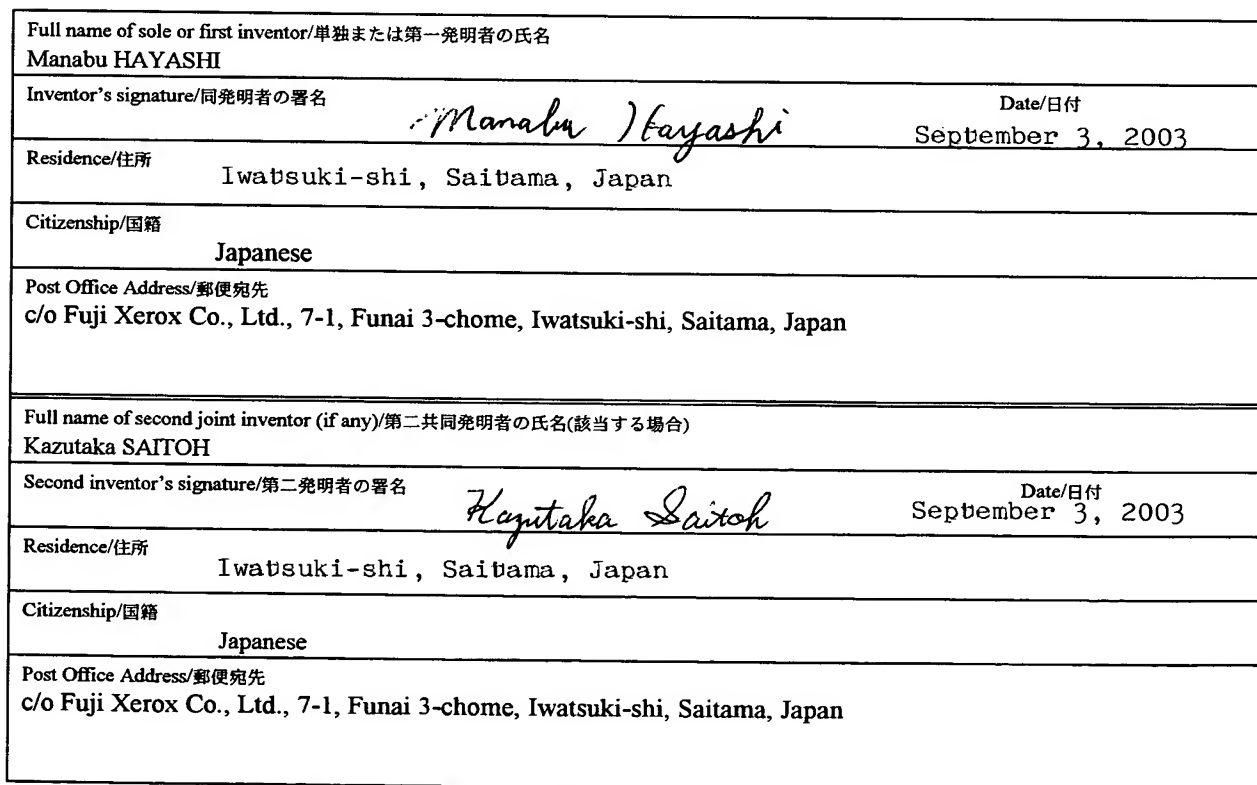 Full name of sole or first inventor/単独または第一発明者の氏名
Manabu HAYASHI
Inventor's signature/同発明者の署名
Manabu Hayashi
Date/日付
September 3, 2003
Residence/住所
Iwatsuki-shi, Saitama, Japan
Citizenship/国籍
Japanese
Post Office Address/郵便宛先
c/o Fuji Xerox Co., Ltd., 7-1, Funai 3-chome, Iwatsuki-shi, Saitama, Japan
Full name of second joint inventor (if any)/第二共同発明者の氏名(該当する場合)
Kazutaka SAITOH
Second inventor's signature/第二発明者の署名
Kazutaka Saitoh
Date/日付
September 3, 2003
Residence/住所
Iwatsuki-shi, Saitama, Japan
Citizenship/国籍
Japanese
Post Office Address/郵便宛先
c/o Fuji Xerox Co., Ltd., 7-1, Funai 3-chome, Iwatsuki-shi, Saitama, Japan